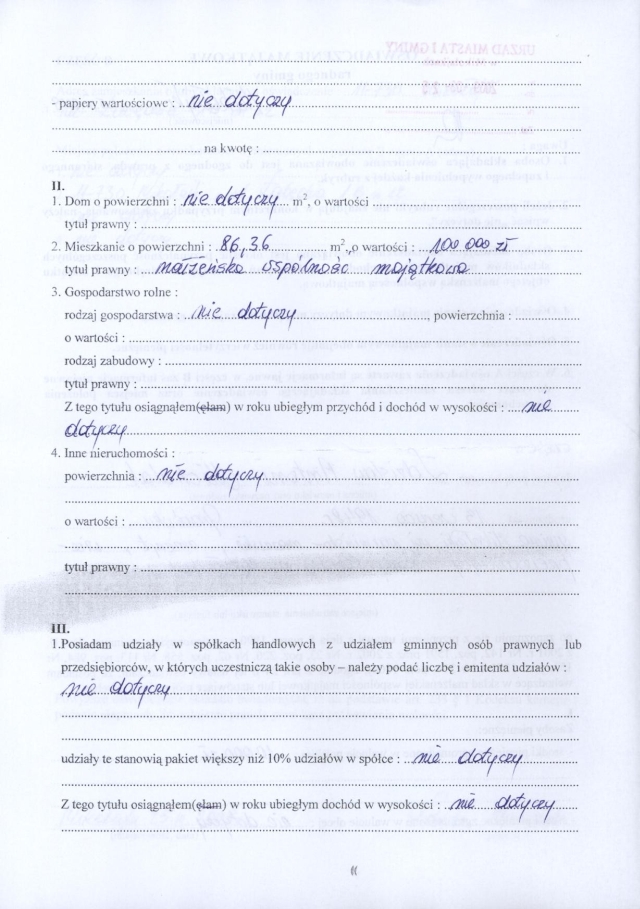 - papiery wartościowe : nie dotyczy
na kwotę :
II.
1. Dom o powierzchni : nie dotyczy m², o wartości
tytuł prawny :
2. Mieszkanie o powierzchni : 86,36 m², o wartości : 100 000 zł
tytuł prawny : małżeńska wspólność majątkowa
3. Gospodarstwo rolne :
rodzaj gospodarstwa : nie dotyczy, powierzchnia :
o wartości :
rodzaj zabudowy :
tytuł prawny :
Z tego tytułu osiągnąłem(ęłam) w roku ubiegłym przychód i dochód w wysokości : nie
dotyczy
4. Inne nieruchomości :
powierzchnia : nie dotyczy
o wartości :
tytuł prawny :
III.
1.Posiadam udziały w spółkach handlowych z udziałem gminnych osób prawnych lub
przedsiębiorców, w których uczestniczą takie osoby – należy podać liczbę i emitenta udziałów :
nie dotyczy
udziały te stanowią pakiet większy niż 10% udziałów w spółce : nie dotyczy
Z tego tytułu osiągnąłem(ęłam) w roku ubiegłym dochód w wysokości : nie dotyczy